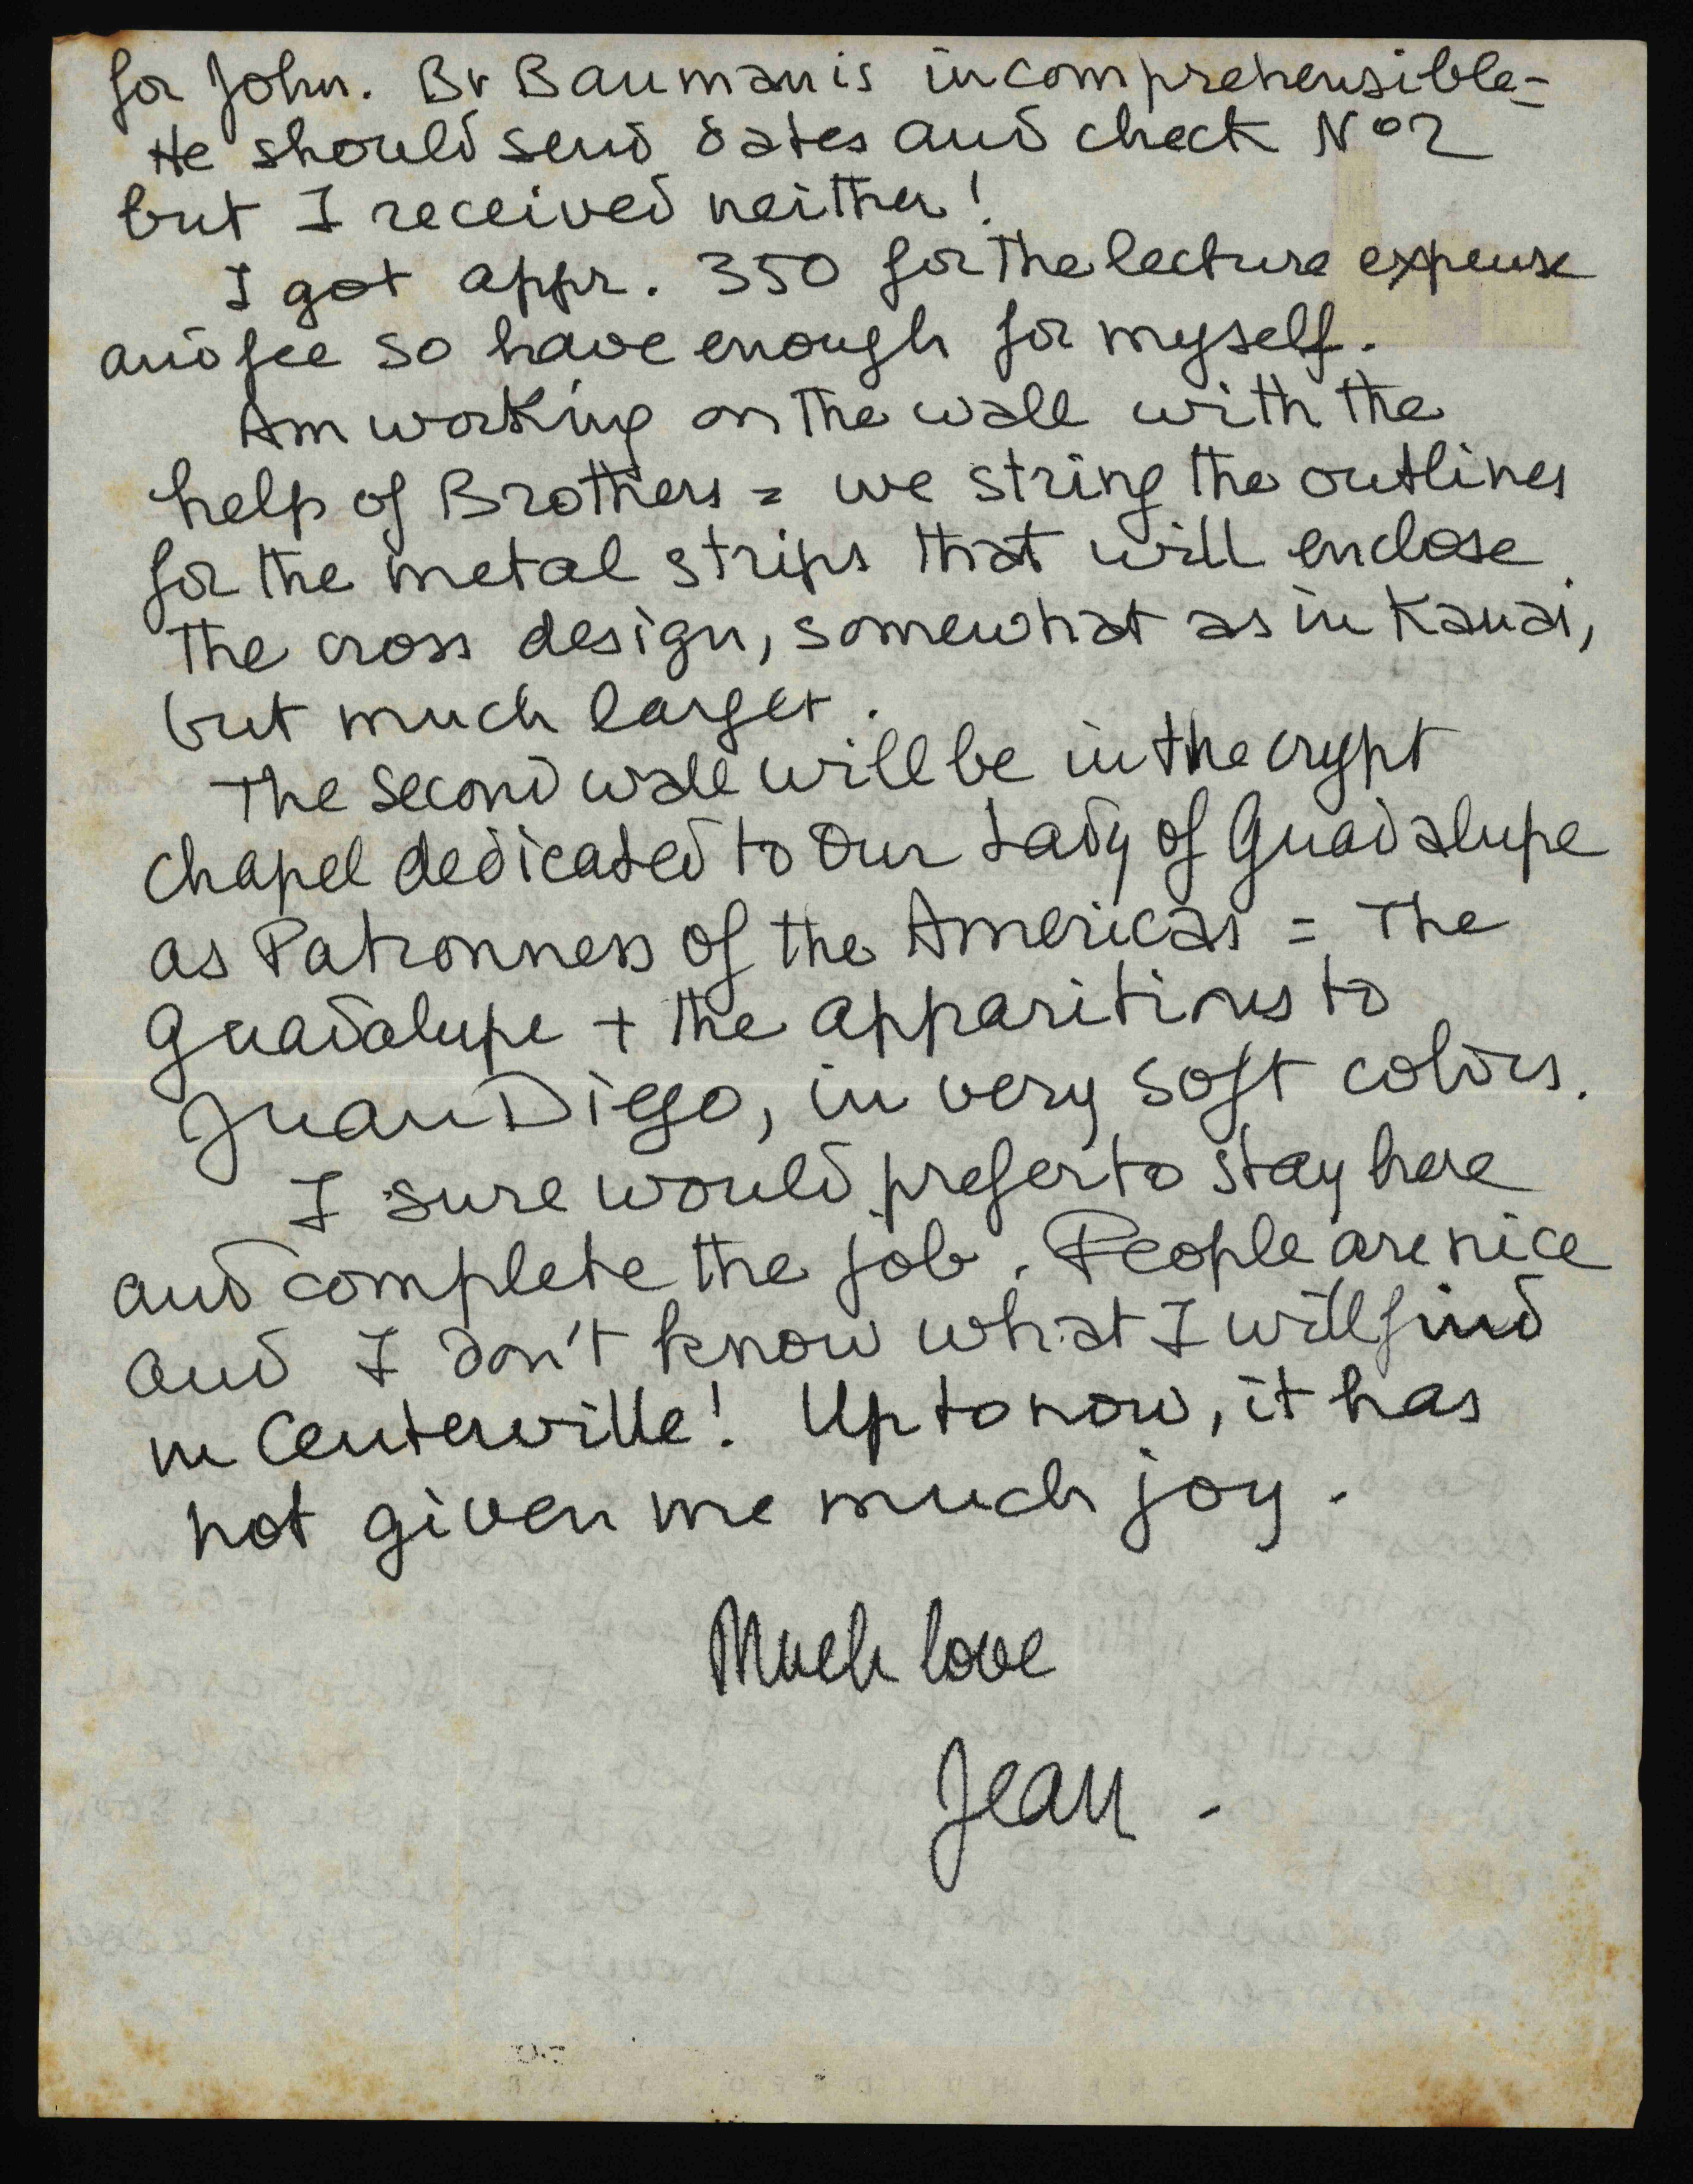 for John. Br Bauman is incomprehensible =
He should send dates and check Nº2
but I received neither!
I got appr. 350 for the lecture expense
and fee so have enough for myself.
Am working on the wall with the
help of Brothers = we string the outlines
for the metal strips that will enclose
the cross design, somewhat as in Kauai,
but much larger.
The second wall will be in the crypt
chapel dedicated to Our Lady of Guadalupe
as Patronness of the Americas = The
Guadalupe + the apparitions to
Juan Diego, in very soft colors.
I sure would prefer to stay here
and complete the job. People are nice
and I don't know what I will find
in Centerville! Up to now, it has
not given me much joy.
Much love
Jean -